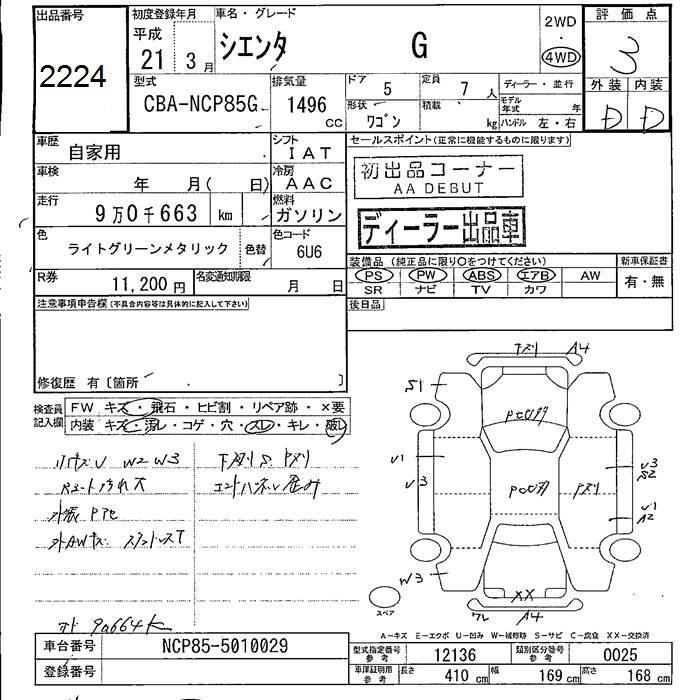 出品番号
2224
初度登録年月
平成
21 3 月
車名・グレード
シエンタ G
2WD
・
4WD
評価点
3
外装 内装
D D
型式
CBA-NCP85G
排気量
1496
CC
ドア 5
定員 7 人
ディーラー・並行
形状 ワゴン
積載 kg
モデル年式 年
ハンドル 左・右
車歴
自家用
シフト
IAT
車検
年 月( 日)
冷房
AAC
走行
9万0千663 km
燃料
ガソリン
色
ライトグリーンメタリック 色替
色コード
6U6
R券
11,200 円
名変通知期限
月 日
セールスポイント(正常に機能するものに限ります)
初出品コーナー
AA DEBUT
ディーラー出品車
装備品 (純正品に限り○をつけてください)
新車保証書
PS PW ABS エアB AW
有・無
SR ナビ TV カワ
後日品
注意事項申告欄(不具合内容等は具体的に記入して下さい)
修復歴 有〔箇所 〕
検査員記入欄
FW キズ・飛石・ヒビ割・リペア跡・×要
内装 キズ・汚レ・コゲ・穴・スレ・キレ・破レ
小キズU W2 W3
下廻りS. Pスリ
Rシート汚れ大
エンドパネル歪み
外装 Pアセ
外AWキズ
9a664K
下スリ A4
S1
PCU77
U1
U3
U3
S2
PCU77
Pスリ
U1
A2
W3
XX
ワレ A4
スペア
A-キズ E-エクボ U-凹み W-補修跡 S-サビ C-腐食 XX-交換済
車台番号
NCP85-5010029
登録番号
型式指定番号 参考
12136
類別区分番号 参考
0025
車庫証明用 参考
長さ 410 cm
幅 169 cm
高さ 168 cm